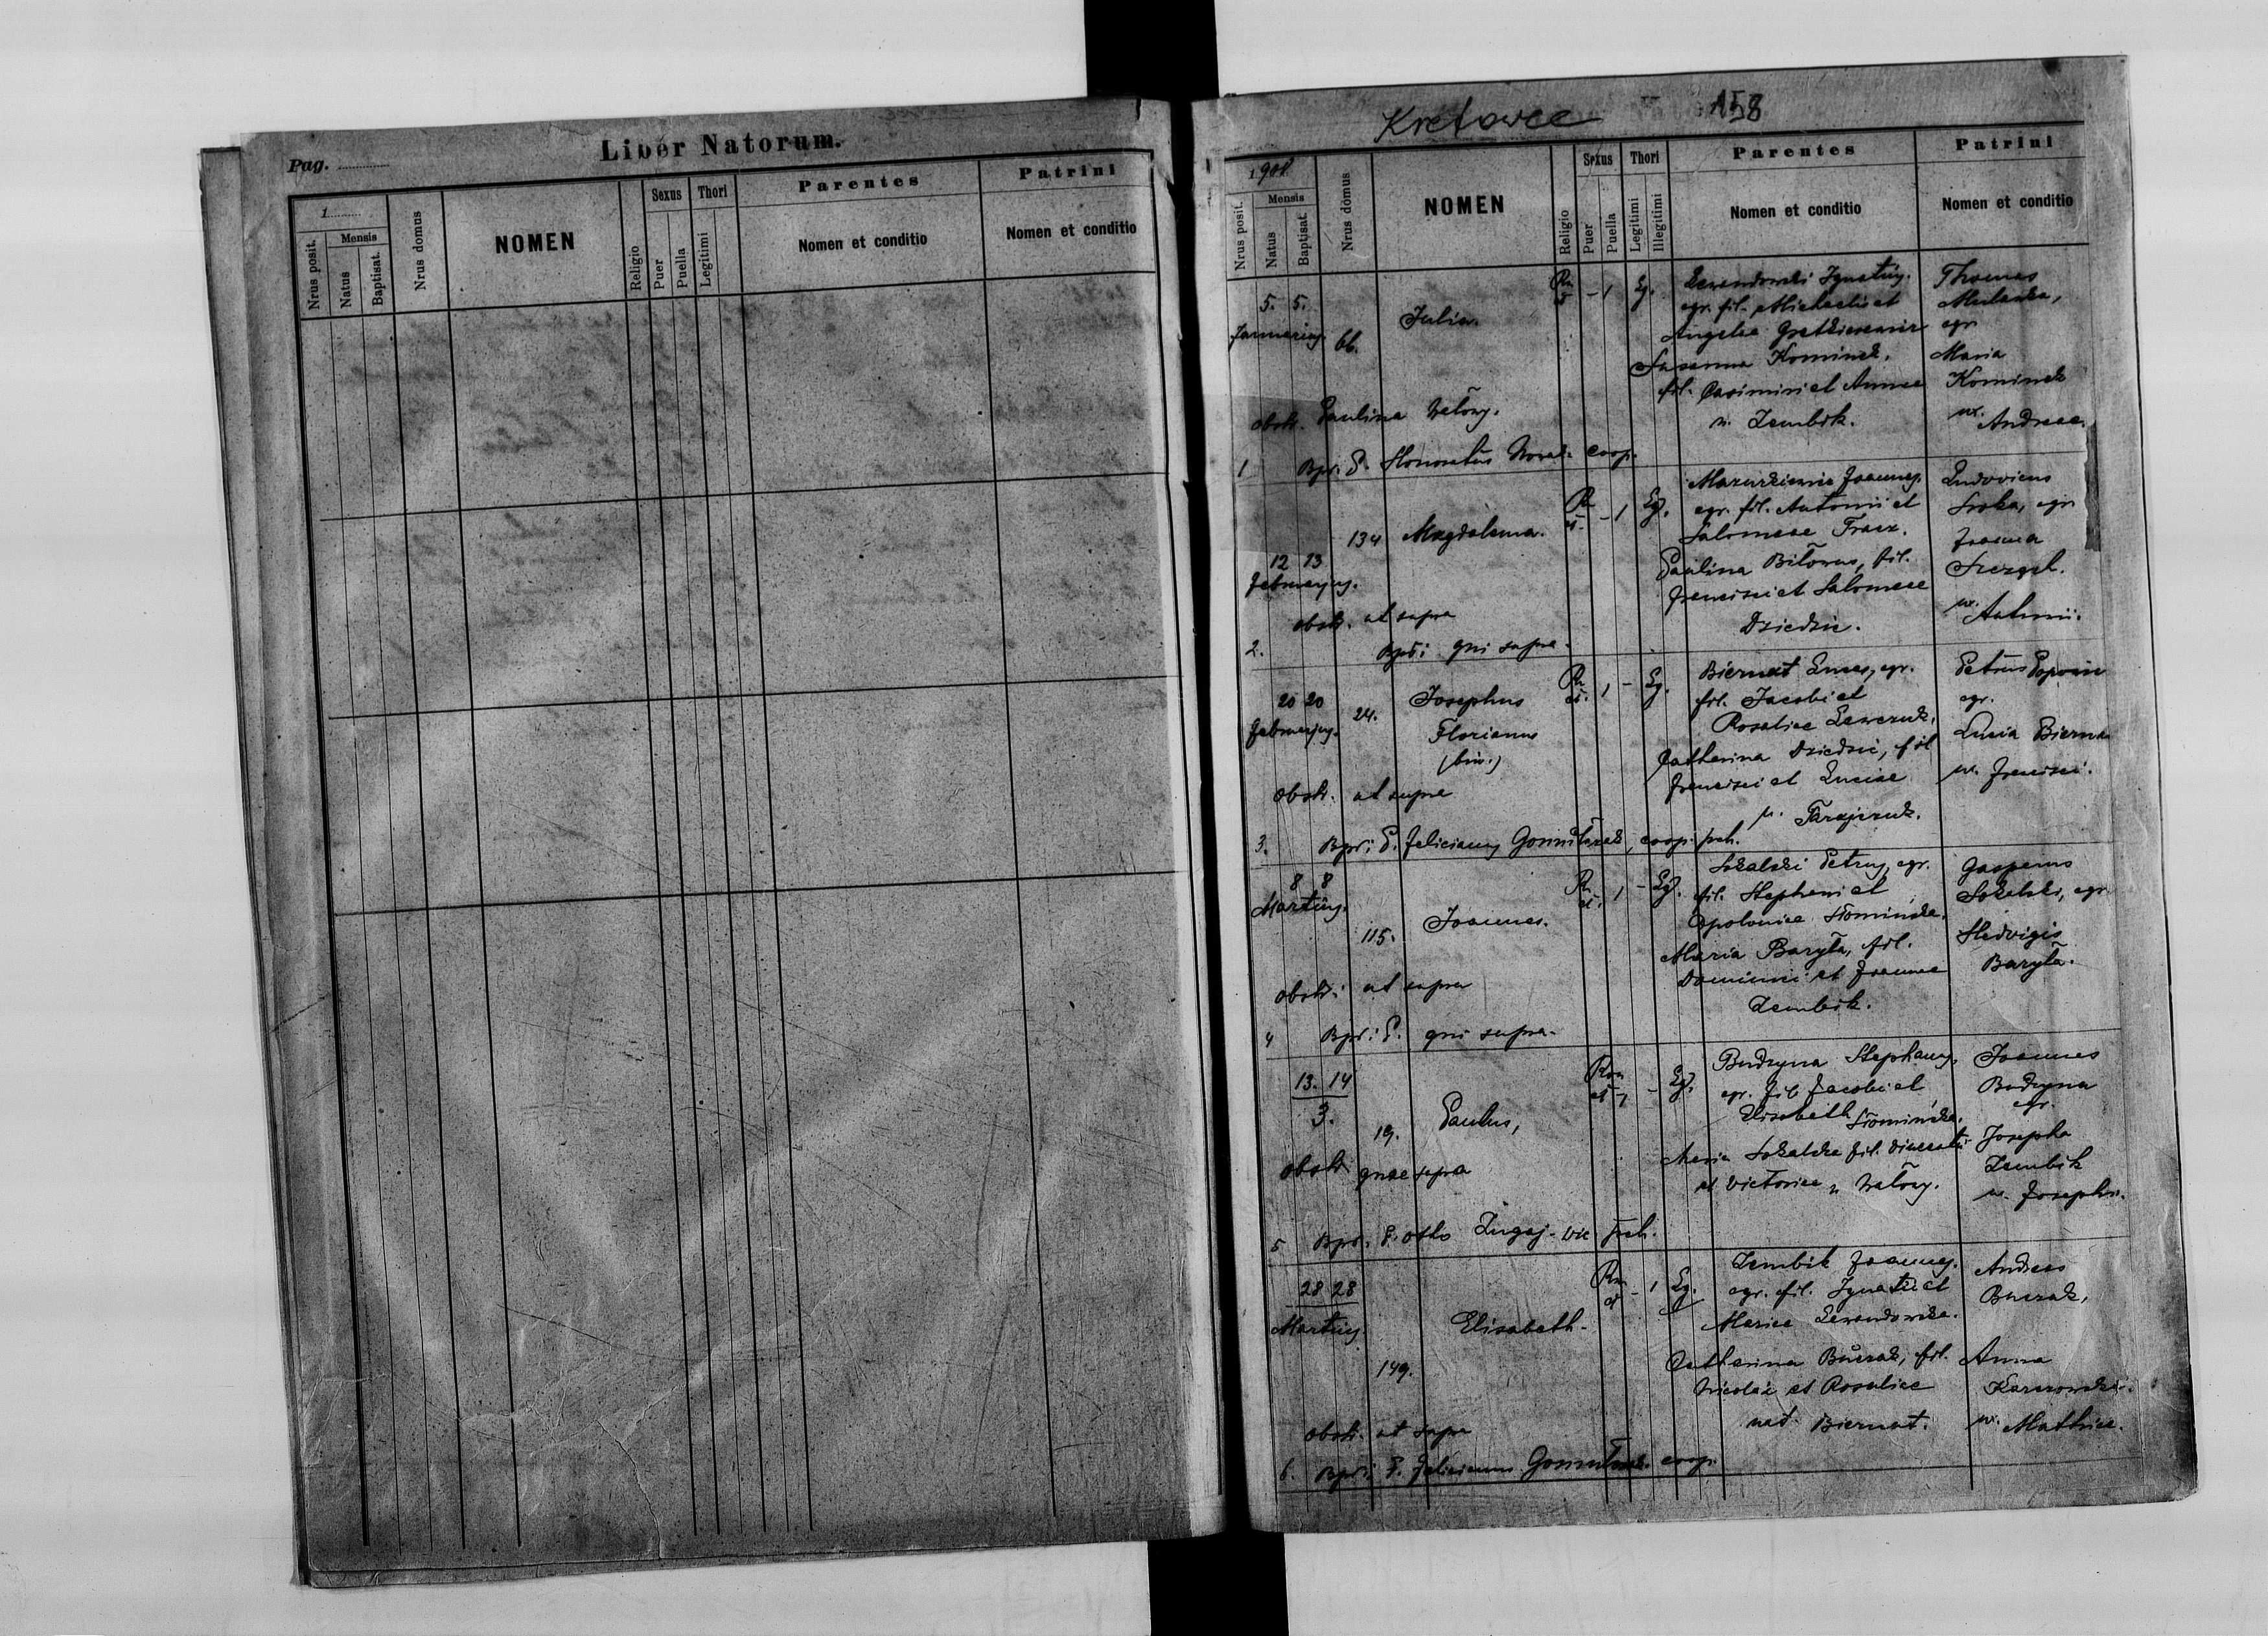 Pag.
Liber Natorum.
1
Nrus posit.
Mensis
Natus
Baptisat.
Nrus domus
NOMEN
Religio
Sexus
Puer
Puella
Thori
Legitimi
Parentes
Nomen et conditio
Patrini
Nomen et conditio
Kretowce
158
1908.
Nrus posit.
Mensis
Natus
Baptisat.
Nrus domus
NOMEN
Religio
Sexus
Puer
Puella
Thori
Legitimi
Illegitimi
Parentes
Nomen et conditio
Patrini
Nomen et conditio
5. 5.
Januarius
66.
Julia.
- 1 Lg.
Lewandowski Ignatius.
agr. fil. Michaelis et
Angelae
Susanna Kominek.
fil. Casimiri et Annae
n. Zembik.
Thomas
agr.
Maria
Kominek
ux.
Andreae.
obstr. Paulina Wałowy.
1 Bpt. P. Honoratus Nowak coop.
12 13
Februarius.
134 Magdalena.
- 1 Lg.
Mazurkiewicz Joannes.
agr. fil. Antonii et
Salomeae Fracz.
Paulina Biłous, fil.
Francisci et Salomeae
Dziedzic.
Ludovicus
Sroka, agr.
Joanna
ux. Antonii.
obstr. ut supra
2. Bpt: qui supra.
20 20
Februarius.
24.
Josephus
Florianus
(bin.)
1 - Lg.
Biernat Lucas, agr.
fil. Jacobi et
Rosaliae Lewczuk.
Catharina Dziedzic, fil
Francisci et Luciae
n.
Petrus Popowicz
agr.
Lucia Biernat
ux. Francisci.
obstr. ut supra
3. Bpt: P. Felicianus coop. pch.
8 8
Martius.
115. Joannes.
1 - Lg.
Sokalski Petrus, agr.
fil. Stephani et
Apoloniae Słomińska.
Maria Baryła, fil.
Dominici et Joannae
Zembik.
Gasparus
Sokalski, agr.
Hedvigis
Baryła.
obstr: ut supra
4 Bpt: P. qui supra.
13. 14
3.
19. Paulus,
- Lg.
Budzyna Stephanus,
agr. fil. Jacobi et
Elisabeth Słomińska.
Maria Sokalska fil. Vincentii
et Victoriae n Wałowy.
Joannes
Budzyna
agr.
Josepha
Zembik
ux. Josephi.
obstr. quae supra
5 Bpt. P. Otto vic pch.
28 28
Martius
149.
Elisabeth.
- 1 Lg.
Zembik Joannes.
agr. fil. Ignatii et
Mariae Lewandowska.
Catharina Burzak, fil.
Nicolai et Rosaliae
nat. Biernat.
Andreas
Burzak,
Anna
ux. Mathiae.
obstr. ut supra
6. Bpt: P. Felicianus coop.